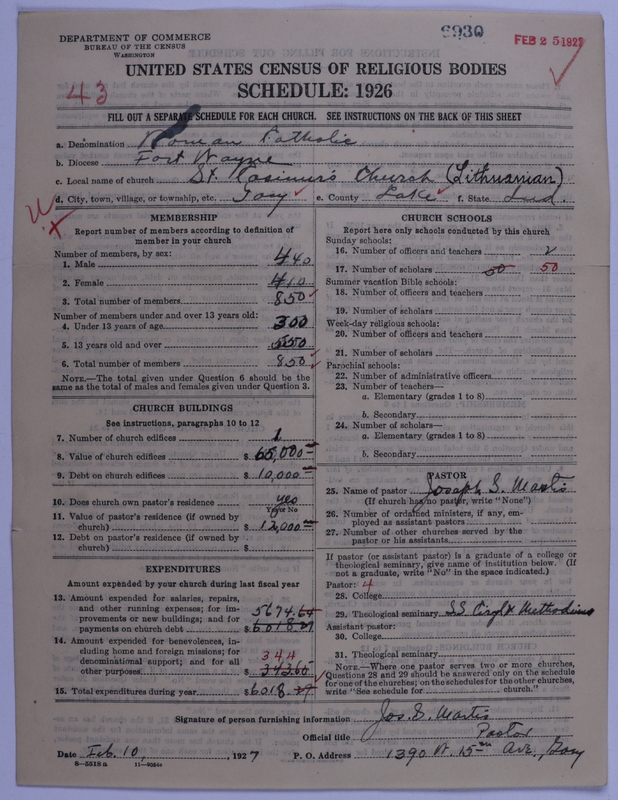 DEPARTMENT OF COMMERCE
BUREAU OF THE CENSUS
WASHINGTON
6930
FEB 25 192
UNITED STATES CENSUS OF RELIGIOUS BODIES
SCHEDULE: 1926
43
FILL OUT A SEPARATE SCHEDULE FOR EACH CHURCH. SEE INSTRUCTIONS ON THE BACK OF THIS SHEET
a. Denomination Roman Catholic
b. Diocese Fort Wayne
c. Local name of church St. Kasimer's Church (Lithuanian)
d. City, town, village, or township, etc. Gary e. County Lake f. State Ind.
MEMBERSHIP
Report number of members according to definition of
member in your church
Number of members, by sex:
1. Male 440
2. Female 410
3. Total number of members 850
Number of members under and over 13 years old:
4. Under 13 years of age 300
5. 13 years old and over 550
6. Total number of members 850
NOTE.—The total given under Question 6 should be the
same as the total of males and females given under Question 3.
CHURCH BUILDINGS
See instructions, paragraphs 10 to 12
7. Number of church edifices 1
8. Value of church edifices $ 65,000—
9. Debt on church edifices $ 10,000—
10. Does church own pastor's residence yes
Yes or No
11. Value of pastor's residence (if owned by
church) $ 12,000
12. Debt on pastor's residence (if owned by
church) $
EXPENDITURES
Amount expended by your church during last fiscal year
13. Amount expended for salaries, repairs,
and other running expenses; for im-
provements or new buildings; and for
payments on church debt $ 5674.64
6018.29
14. Amount expended for benevolences, in-
cluding home and foreign missions; for
denominational support; and for all
other purposes 344
$ 343.65
15. Total expenditures during year $ 6018.29
CHURCH SCHOOLS
Report here only schools conducted by this church
Sunday schools:
16. Number of officers and teachers 2
17. Number of scholars 50 50
Summer vacation Bible schools:
18. Number of officers and teachers
19. Number of scholars
Week-day religious schools:
20. Number of officers and teachers
21. Number of scholars
Parochial schools:
22. Number of administrative officers
23. Number of teachers—
a. Elementary (grades 1 to 8)
b. Secondary
24. Number of scholars—
a. Elementary (grades 1 to 8)
b. Secondary
PASTOR
25. Name of pastor Joseph S. Martis
(If church has no pastor, write "None")
26. Number of ordained ministers, if any, em-
ployed as assistant pastors
27. Number of other churches served by the
pastor or his assistants
If pastor (or assistant pastor) is a graduate of a college or
theological seminary, give name of institution below. (If
not a graduate, write "No" in the space indicated.)
Pastor: 4
28. College
29. Theological seminary SS. Cyril & Methodius
Assistant pastor:
30. College
31. Theological seminary
NOTE.—Where one pastor serves two or more churches,
Questions 28 and 29 should be answered only on the schedule
for one of the churches; on the schedules for the other churches,
write "See schedule for church."
Signature of person furnishing information Jos. S. Martis
Official title Pastor
Date Feb. 10, 1927 P. O. Address 1390 W. 15th Ave., Gary
8—5518a 11—9054c